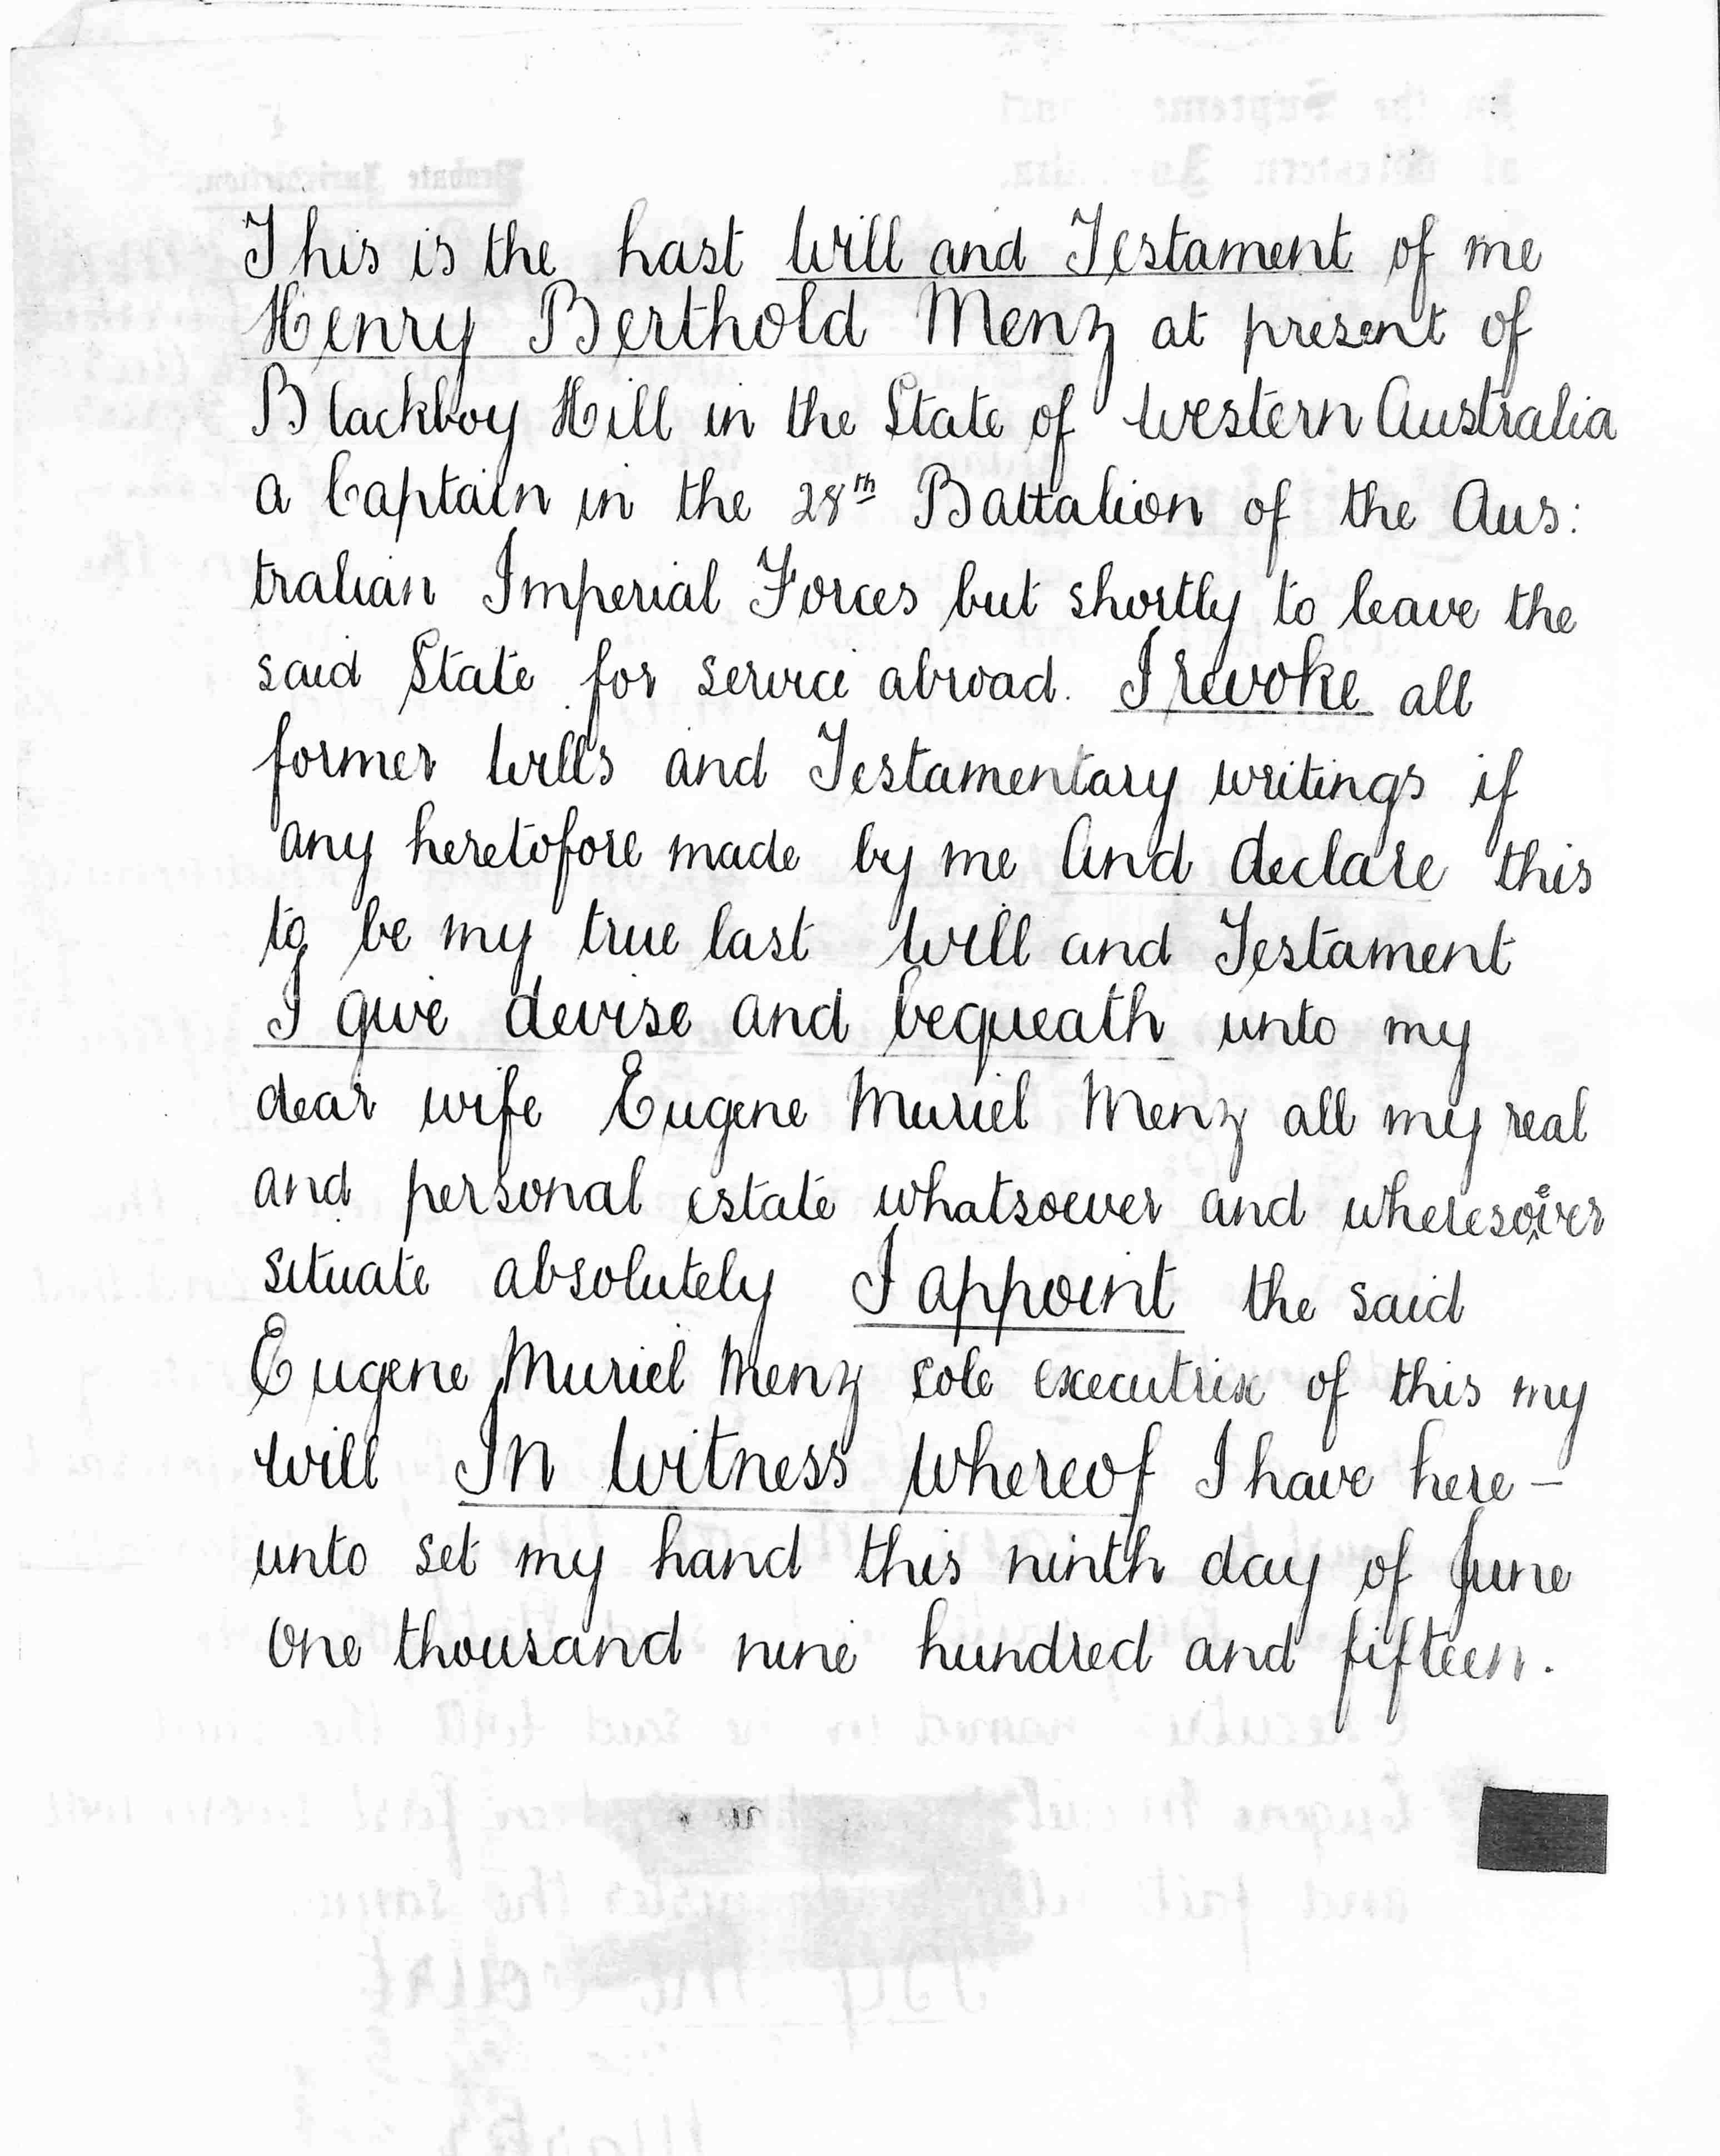 This is the Last Will and Testament of me
Henry Berthold Menz at present of
Blackboy Hill in the State of Western Australia
a Captain in the 28th Battalion of the Aus:
tralian Imperial Forces but shortly to leave the
said State for service abroad. I revoke all
former Wills and Testamentary writings if
any heretofore made by me and declare this
to be my true last Will and Testament
I give devise and bequeath unto my
dear wife Eugene Muriel Menz all my real
and personal estate whatsoever and wheresoever
situate absolutely I appoint the said
Eugene Muriel Menz sole executrix of this my
will In Witness Whereof I have here-
unto set my hand this ninth day of June
One thousand nine hundred and fifteen.